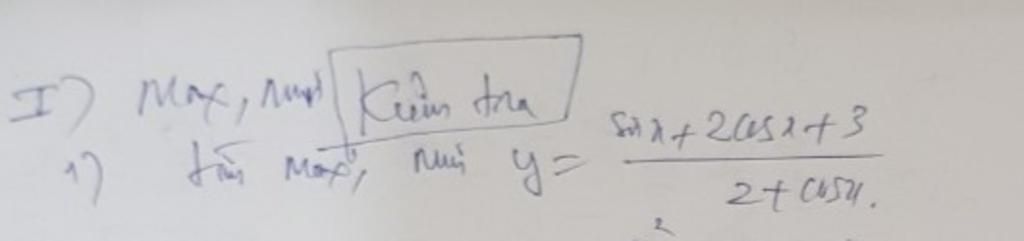 I) Max, min Kiểm tra
1) tìm Max, min y = \frac{sin x + 2cos x + 3}{2 + cos x}.
2